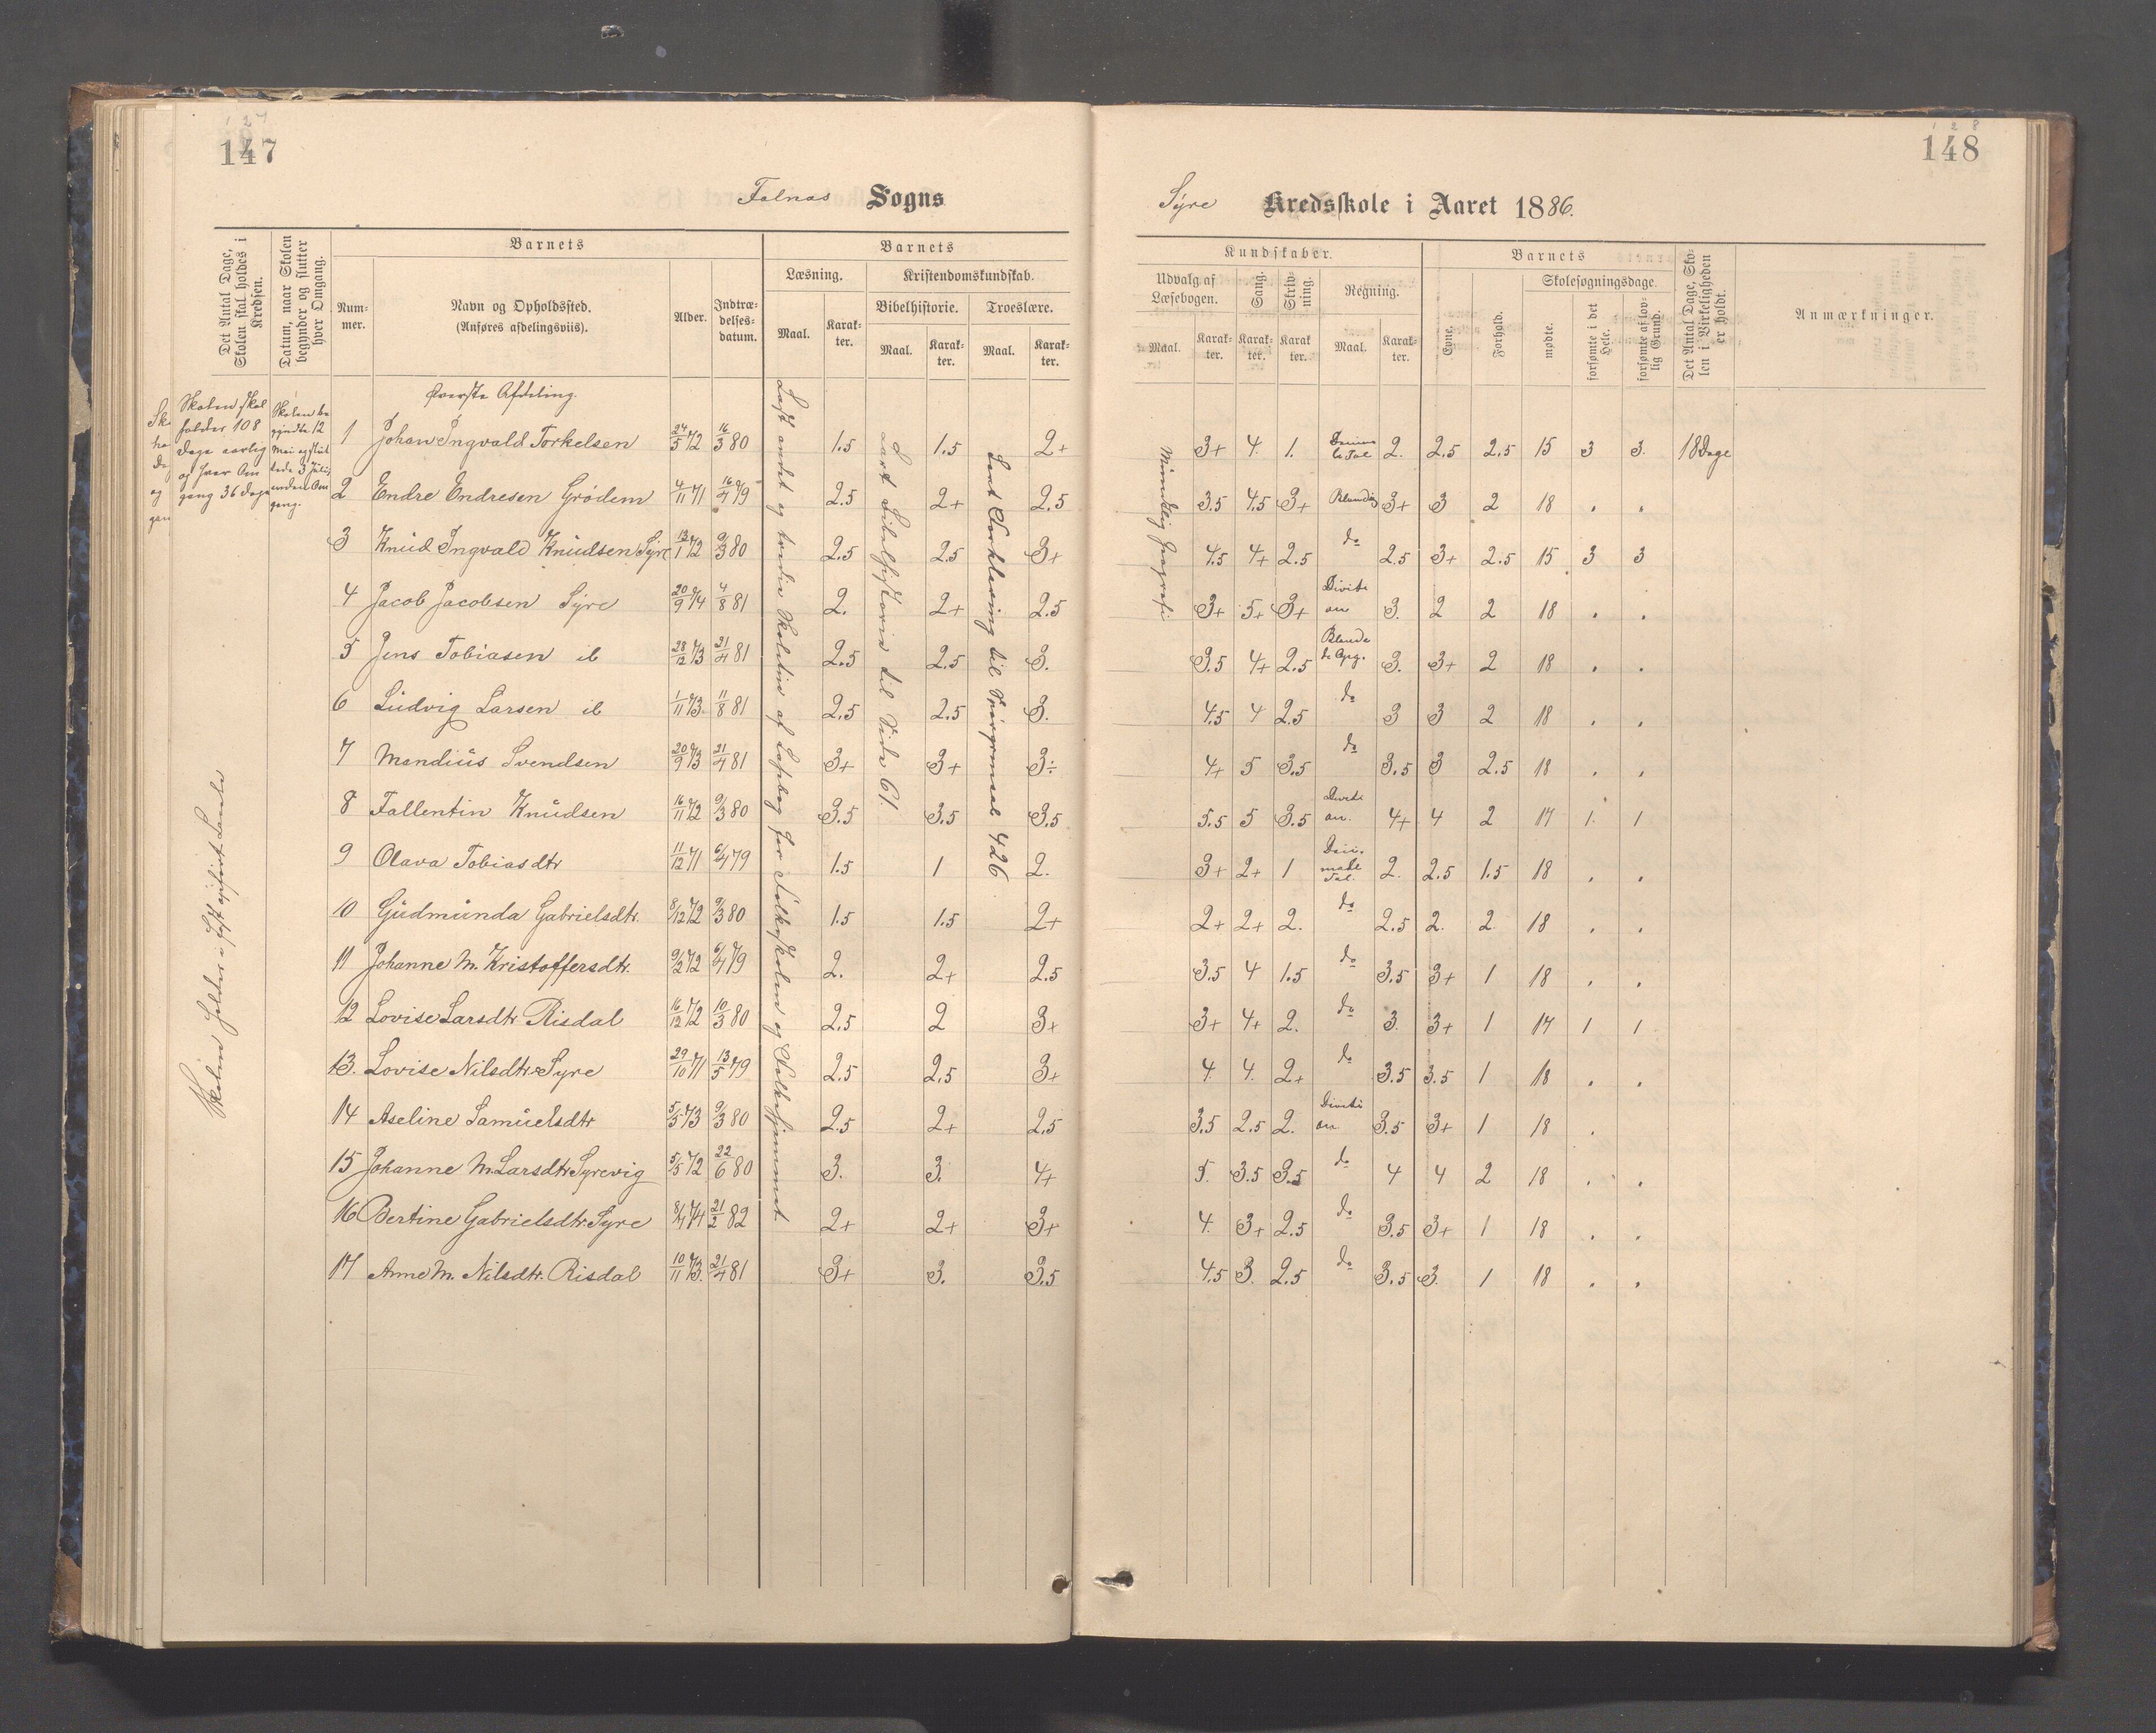 147
Falnæs Sogns
Det Antal Dage, Skolen skal holdes i Kredsen.
Datum, naar Skolen begynder og slutter hver Omgang.
Barnets
Num-mer.
Navn og Opholdssted.
(Anføres afdelingsviis).
Alder.
Indtræ-delses-datum.
Barnets
Læsning.
Kristendomskundskab.
Bibelhistorie.
Troeslære.
Maal.
Karak-ter.
Maal.
Karak-ter.
Maal.
Karak-ter.
Skolen skal holdes 108 Dage aarlig og hver Om gang 36 dage
Skolen be gyndte 12 Mai og slut tede 3 Juli, anden Om gang.
Skolen holdes i fast opført Locale
Øverste Afdeling.
Læst andet og tredie Skoletrin af Læsebog for Folkeskolen og Folkehjemmet
Lært Bibelhistorie til Side 61.
Lært Forklaring til Spørgsmaal 426
1 Johan Ingvald Torkelsen 24/5 72 16/3 80 1.5 1.5 2+
2 Endre Endresen Grödem 4/11 71 16/4 79 2.5 2+ 2.5
3 Knud Ingvald Knudsen Syre 13/1 72 9/3 80 2.5 2.5 3+
4 Jacob Jacobsen Syre 20/9 74 4/8 81 2. 2+ 2.5
5 Jens Tobiasen ib 28/12 73 21/4 81 2.5 2.5 3.
6 Ludvig Larsen ib 1/11 73 11/8 81 2.5 2.5 3.
7 Mandius Svendsen 20/9 73 21/4 81 3+ 3+ 3÷
8 Fallentin Knudsen 16/11 72 9/3 80 3.5 3.5 3.5
9 Olava Tobiasdtr 11/12 71 6/4 79 1.5 1 2.
10 Gudmunda Gabrielsdtr. 8/12 72 9/3 80 1.5 1.5 2+
11 Johanne M. Kristoffersdtr. 9/2 72 6/4 79 2. 2+ 2.5
12 Lovise Larsdtr Risdal 16/12 72 10/3 80 2.5 2 3+
13. Lovise Nilsdtr Syre 29/10 71 13/5 79 2.5 2.5 3+
14 Aseline Samuelsdtr 5/5 73 9/3 80 2.5 2+ 2.5
15 Johanne M. Larsdtr Syrevig 5/5 72 22/6 80 3. 3. 4+
16 Bertine Gabrielsdtr Syre 8/4 74 21/2 82 2+ 2+ 3+
17 Anne M. Nilsdtr. Risdal 10/11 73. 21/4 81 3+ 3. 3.5
148
Syre Kredsskole i Aaret 1886.
Kundskaber.
Udvalg af Læsebogen.
Sang.
Skriv-ning.
Regning.
Maal.
Karak-ter.
Karak-ter.
Karak ter.
Maal.
Karak-ter.
Barnets
Evne.
Forhold.
Skolesøgningsdage.
mødte.
forsømte i det Hele.
forsømte af lov-lig Grund.
Det Antal Dage, Sko-len i Virkeligheden er holdt.
Anmærkninger.
Mundtlig Geografi
3+ 4. 1. 2. 2.5 2.5 15 3 3. 18 Dage
3.5 4.5 3+ 3+ 3 2 18 . .
4.5 4+ 2.5 do 2.5 3+ 2.5 15 3 3
3+ 5+ 3+ Diviti on 3. 2 2 18 . .
3.5 4+ 2.5 Blande de Opg. 3. 3+ 2 18 . .
4.5 4 2.5 do 3 3 2 18 . .
4+ 5 3.5 do 3.5 3 2.5 18 . .
5.5 5 3.5 Diviti on. 4+ 4 2 17 1. 1
3+ 2+ 1 2. 2.5 1.5 18 . .
2+ 2+ 2. do 2.5 2. 2. 18 . .
3.5 4 1.5 do 3.5 3+ 1 18 . .
3+ 4+ 2. do 3. 3+ 1 17 1 1
4. 4. 2+ do 3.5 3.5 1 18 . .
3.5 2.5 2. Diviti on 3.5 3+ 1 18 .
5. 3.5 3.5 do 4 4 2 18 . .
4. 3+ 2.5 do 3.5 3+ 1 18 . .
4.5 3. 2.5 do 3.5 3. 1 18 . .